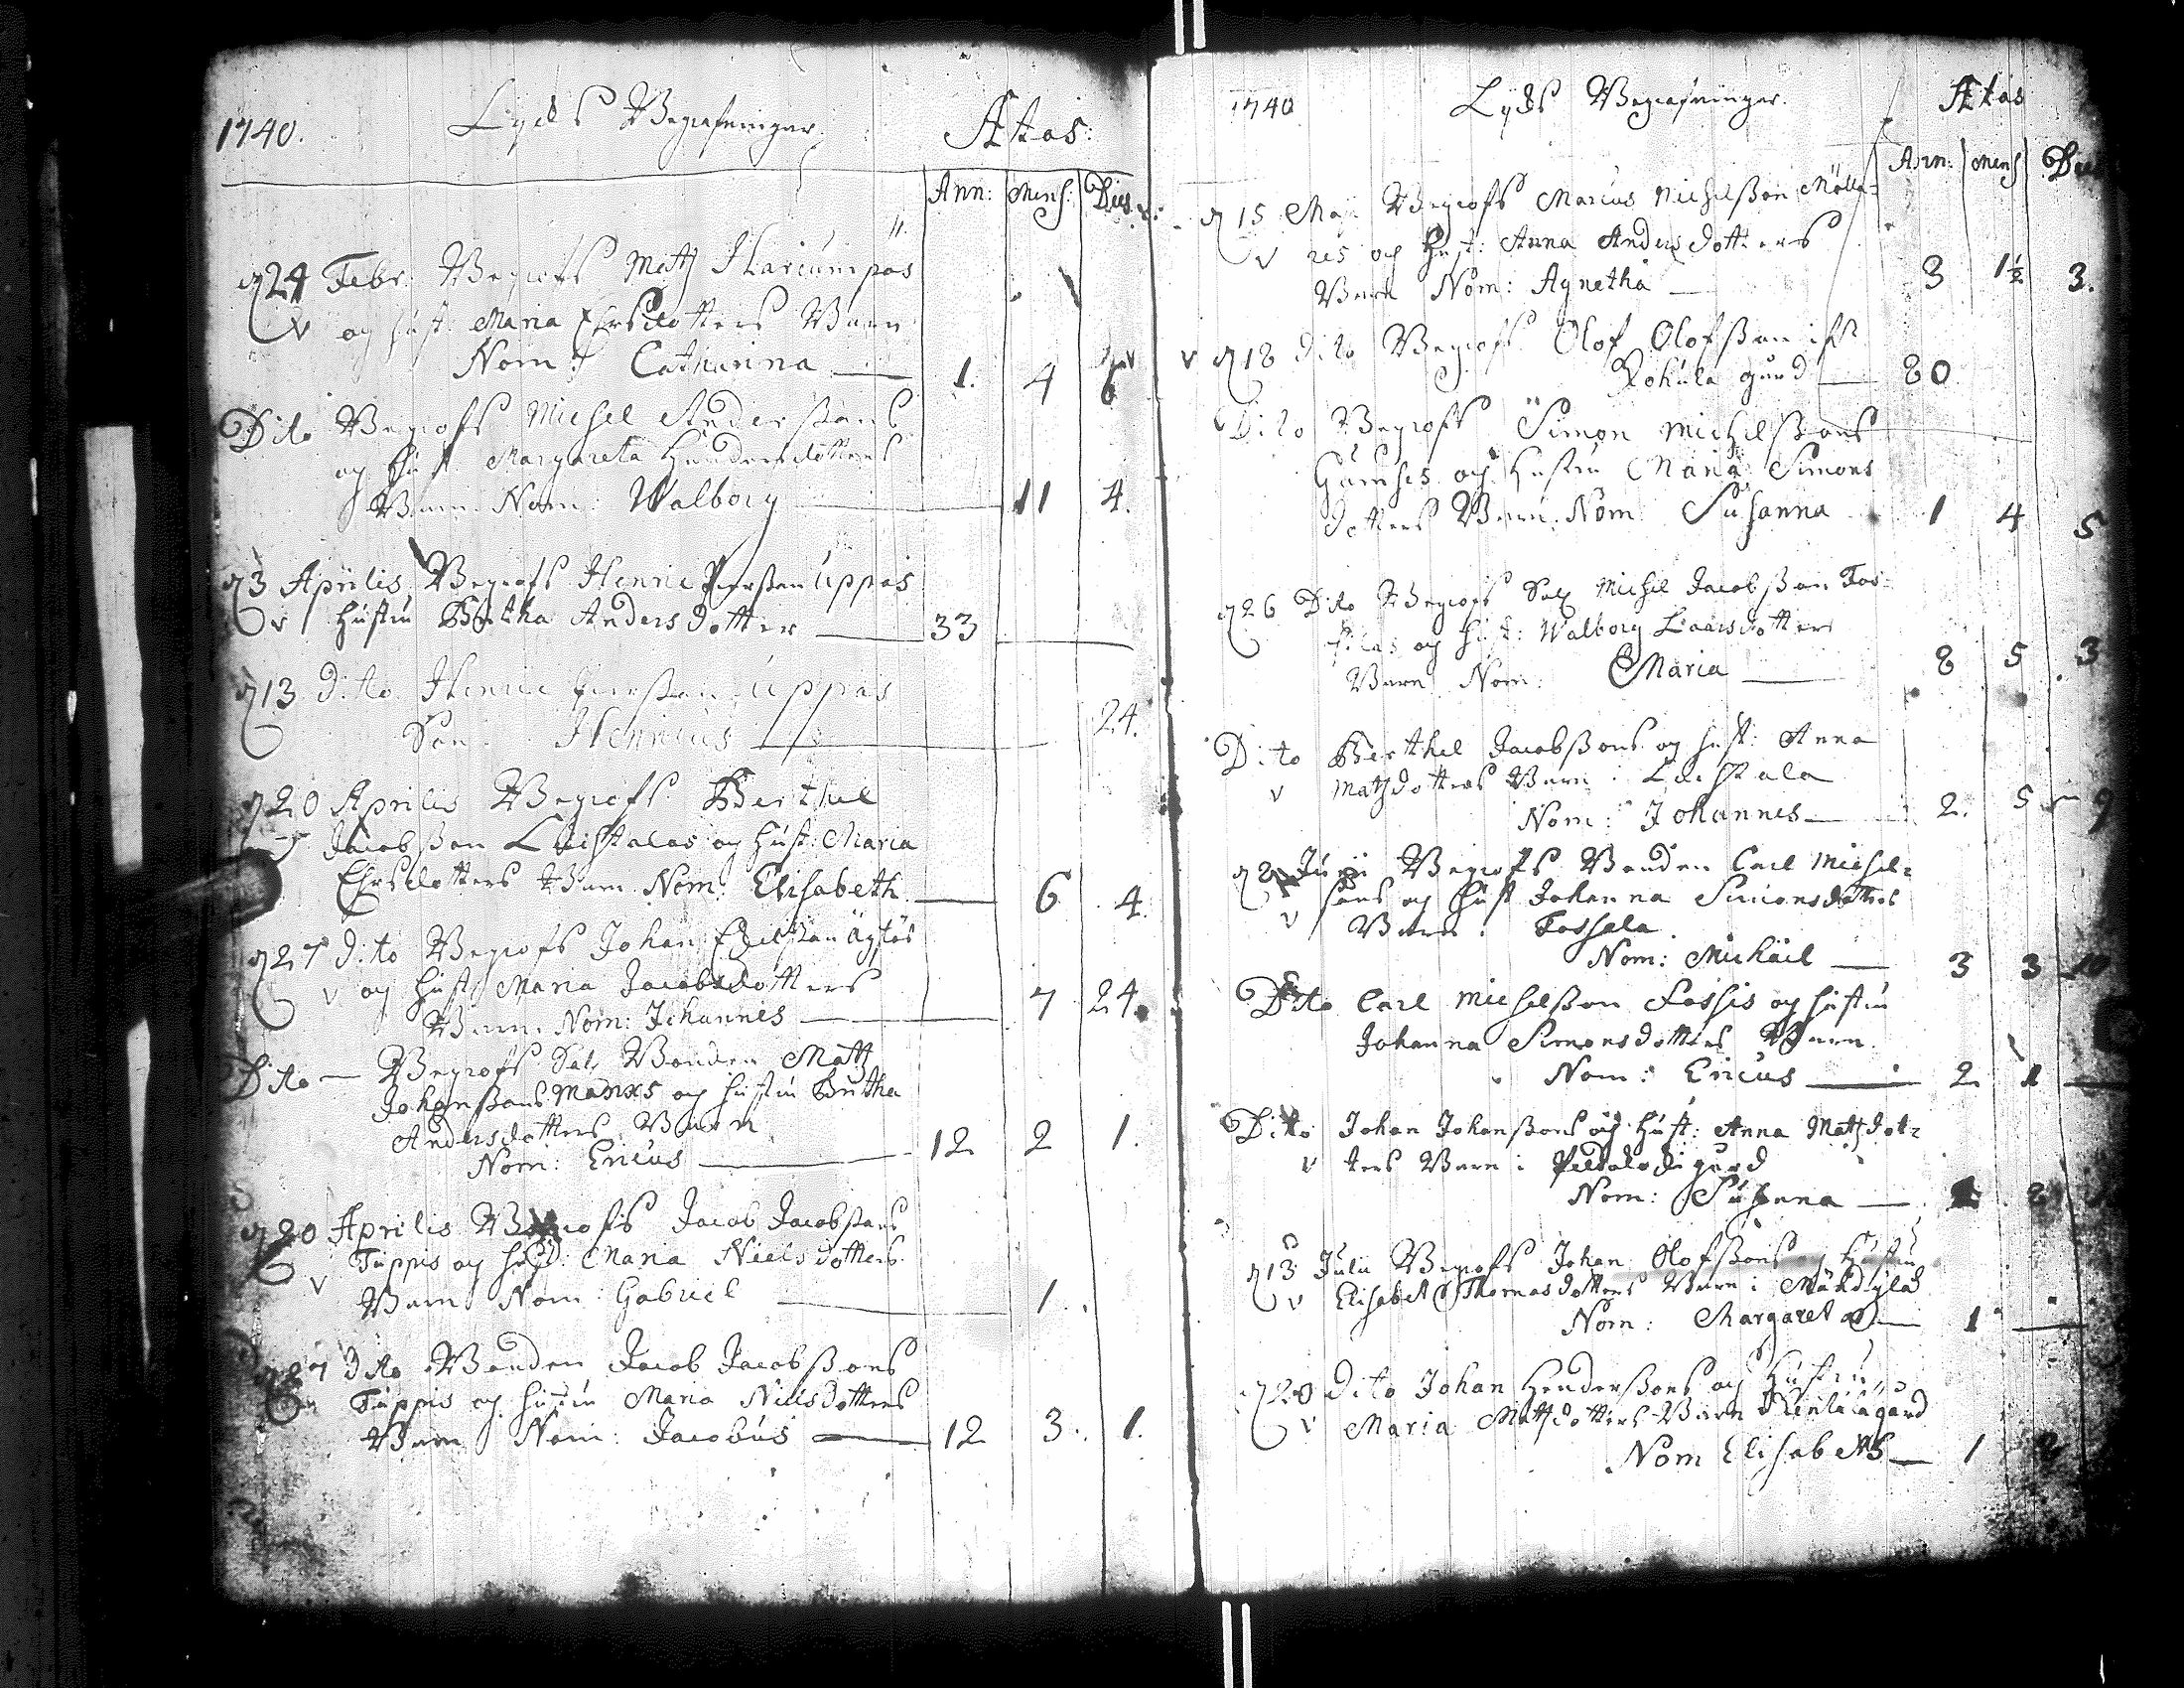 1740. Begrafningar. Ætas:
Ann: Mens: Dies:
d 24 Febr: Begrofs Matz
v og hust. Maria Ehrsdotters Barn
Nom: Catharina 1. 4 6
Dito Begrofs Michel Anderssons
og Hust. Margareta Hindersdotters
Barn Nom: Walborg 11 4.
d 3 Aprilis Begrofs Henric Persson Uppas
v Hustru Birtha Andersdotter 33
d 13 Dito Henric Persson Uppas
Son Henricus 24.
d 20 Aprilis Begrofs Berthel
Jacobsson og Hust: Maria
Ehrsdotters Barn Nom: Elisabeth 6 4.
d 27 Dito Begrofs Johan
v og Hust. Maria Jacobsdotters
Barn. Nom: Johannes 7 24.
Dito — Begrofs Sal. Bonden Matz
Johanssons og hustru Birtha
Andersdotters Barn
Nom: Ericus 12 2 1.
d 20 Aprilis Begrofs Jacob Jacobssons
v Tuppis og Hust: Maria Nielsdotters
Barn Nom: Gabriel 1.
d 27 Dito Bonden Jacob Jacobssons
Tuppis og hustru Maria Nielsdotters
Barn Nom: Jacobus 12 3. 1.
1740 Begrafningar. Ætas
Ann: Mens Dies
d 15 Maji Begrofs Marcus Michelsson Mölla=
v res og Hust: Anna Andersdotters
Barn Nom: Agnetha 3 1½ 3.
v d 18 Dito Begrofs Olof Olofsson ifr.
gård 80
Dito Begrofs Simon Michelssons
og Hustru Maria Simons
dotters Barn. Nom: Susanna 1 4 5
d 26 Dito Begrofs Sal. Michel Jacobsson Fos=
silas og Hust: Walborg Larsdotters
Barn Nom: Maria 8 5 3
Dito Berthel Jacobssons og Hust: Anna
v Matzdotters Barn i
Nom: Johannes 2. 5 9
d 8 Junii Begrofs Bonden Carl Michel=
v sons og Hust Johanna Simonsdotters
Barn i Fossela.
Nom: Michäil 3 3 10
Dito Carl Michelsson Fossis og hustru
Johanna Simonsdotters Barn.
Nom: Ericus 2. 1
Dito Johan Johanssons og Hust: Anna Matzdot=
v ters Barn i gård
Nom: Susanna
d 13 Julii Begrofs Johan Olofssons og Hustru
v Elisabet Thomasdotters Barn i
Nom: Margareta 1
d 20 Dito Johan Henderssons og Hustru
v Maria Matzdotters Barn
Nom Elisabeth 1